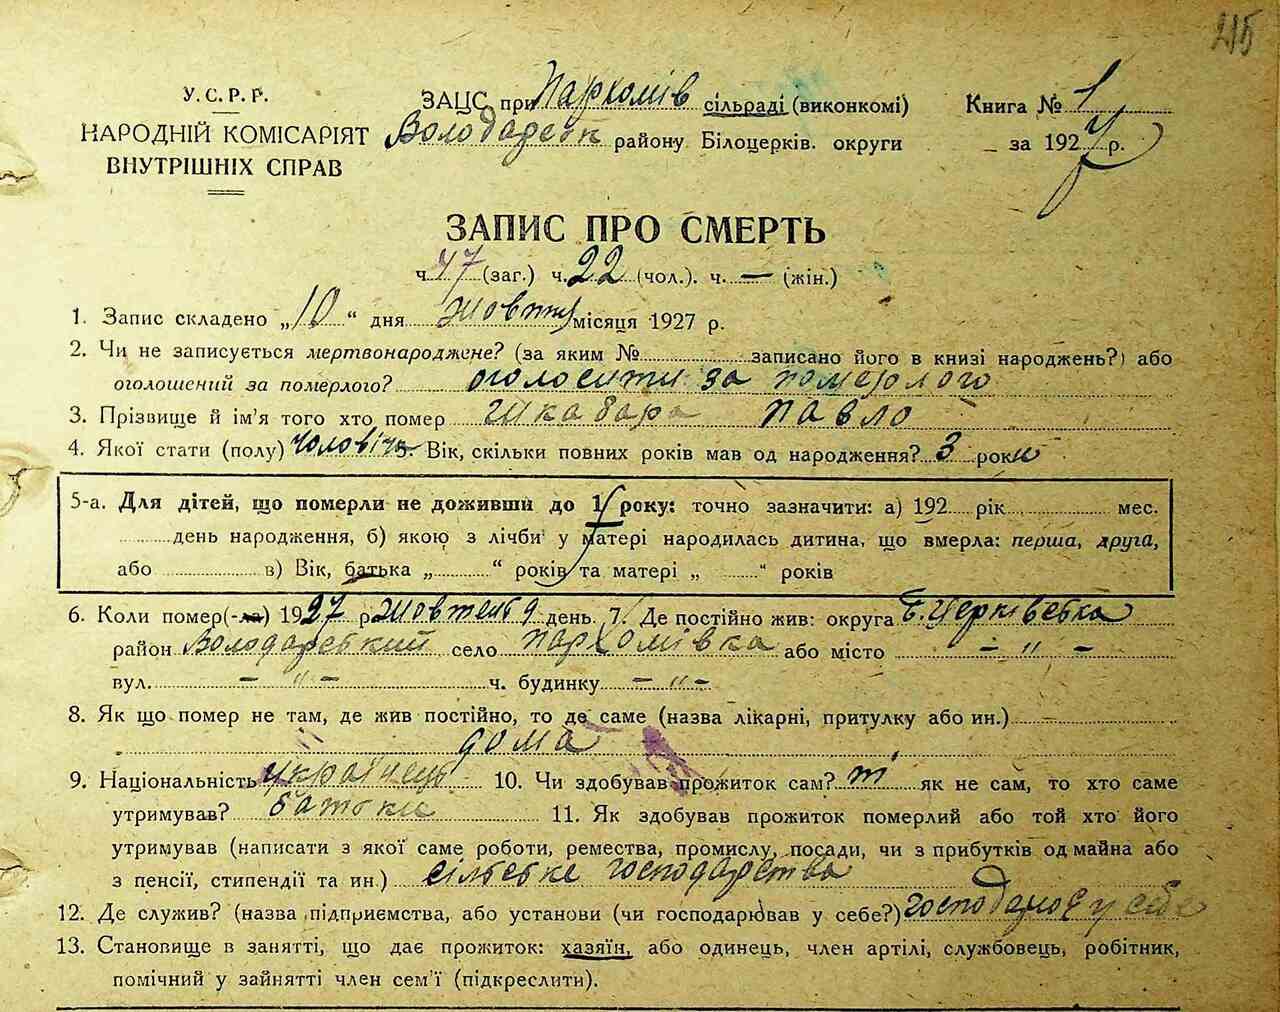 215
У.С.Р.Р.
НАРОДНІЙ КОМІСАРІЯТ
ВНУТРІШНІХ СПРАВ
ЗАЦС при Пархомів сільраді (виконкомі)
Володарськ району Білоцерків. округи
Книга № 1
за 1927 р.
ЗАПИС ПРО СМЕРТЬ
ч. 47 (заг.) ч. 22 (чол.). ч. — (жін.)
1. Запис складено „10“ дня жовтня місяця 1927 р.
2. Чи не записується мертвонароджене? (за яким № записано його в книзі народжень?) або
оголошений за померлого? оголосити за померлого
3. Прізвище й ім'я того хто помер Шкабара Павло
4. Якої стати (полу) чоловіч. Вік, скільки повних років мав од народження? 3 роки
5-а. Для дітей, що померли не доживши до 1 року: точно зазначити: а) 192 рік мес.
день народження, б) якою з лічби у матері народилась дитина, що вмерла: перша, друга,
або в) Вік, батька „ “ років та матері „ “ років
6. Коли помер(-ла) 1927 р жовтень 9 день. 7. Де постійно жив: округа Б.Церківська
район Володарський село Пархомівка або місто - " -
вул. - " - ч. будинку - " -
8. Як що помер не там, де жив постійно, то де саме (назва лікарні, притулку або ин.)
дома
9. Національність українець 10. Чи здобував прожиток сам? ні як не сам, то хто саме
утримував? батьки 11. Як здобував прожиток померлий або той хто його
утримував (написати з якої саме роботи, ремества, промислу, посади, чи з прибутків од майна або
з пенсії, стипендії та ин.) сільське господарства
12. Де служив? (назва підприємства, або установи (чи господарював у себе?) господарює у себе
13. Становище в занятті, що дає прожиток: хазяїн, або одинець, член артілі, службовець, робітник,
помічний у зайнятті член сем'ї (підкреслити).